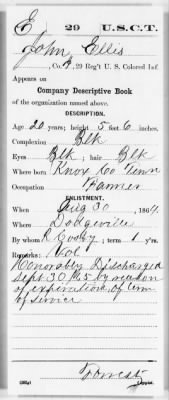 E 29 U.S.C.T.
John Ellis
, Co. F, 29 Reg't U. S. Colored Inf.
Appears on
Company Descriptive Book
of the organization named above.
DESCRIPTION.
Age 20 years; height 5 feet 6 inches.
Complexion Blk
Eyes Blk; hair Blk
Where born Knox Co Tenn
Occupation Farmer
ENLISTMENT.
When Aug 30, 1864.
Where Dodgeville
By whom R Cosby; term 1 y'rs.
Remarks: Col
Honorably Discharged
Sept 30 65 by reason
of expiration of term
of service
Forrest
Copyist.